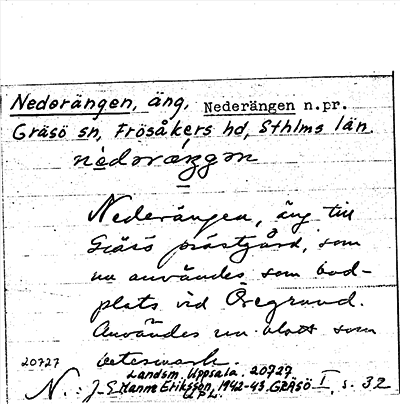 Nederängen, äng, Nederängen n.pr.
Gräsö sn, Frösåkers hd, Sthlms län.
Nederängen, äng till
Gräsö prästgård, som
nu användes som bad-
plats vid Öregrund.
Användes nu blott som
betesmark.
20727
Landsm. Uppsala. 20727
N.: J-S Manne Eriksson, 1942-43. GRÄSÖ I, s. 32
UPL.